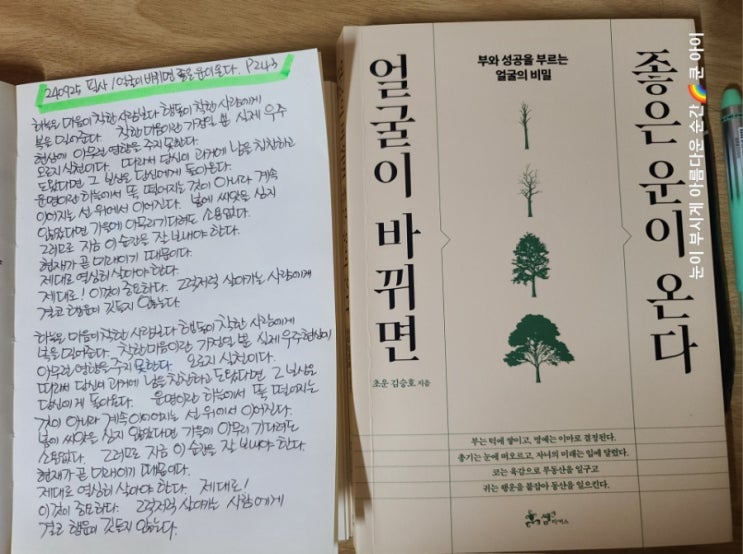 240925 필사 / 얼굴이 바뀌면 좋은 운이 온다. P243
하늘은 마음이 착한 사람보다 행동이 착한 사람에게
복을 밀어준다. 착한 마음이란 가정일 뿐 실제 우주
현상에 아무런 영향을 주지 못한다.
오로지 실천이다. 따라서 당신이 과거에 남을 칭찬하고
도왔다면 그 보상은 당신에게 돌아온다.
운명이란 하늘에서 뚝 떨어지는 것이 아니라 계속
이어지는 선 위에서 이어진다. 봄에 씨앗을 심지
않았다면 가을에 아무리 기다려도 소용없다.
그러므로 지금 이 순간을 잘 보내야 한다.
현재가 곧 미래이기 때문이다.
제대로 열심히 살아야 한다.
제대로! 이것이 중요하다. 그럭저럭 살아가는 사람에게
결코 행운이 깃들지 않는다.
하늘은 마음이 착한 사람보다 행동이 착한 사람에게
복을 밀어준다. 착한 마음이란 가정일 뿐 실제 우주현상에
아무런 영향을 주지 못한다. 오로지 실천이다.
따라서 당신이 과거에 남을 칭찬하고 도왔다면 그 보상은
당신에게 돌아온다. 운명이란 하늘에서 뚝 떨어지는
것이 아니라 계속 이어지는 선 위에서 이어진다.
봄에 씨앗을 심지 않았다면 가을에 아무리 기다려도
소용없다. 그러므로 지금 이 순간을 잘 보내야 한다.
현재가 곧 미래이기 때문이다.
제대로 열심히 살아야 한다. 제대로!
이것이 중요하다. 그럭저럭 살아가는 사람에게
결코 행운이 깃들지 않는다.
부와 성공을 부르는
얼굴의 비밀
얼굴이 바뀌면
좋은 운이 온다
초운 김승호 지음
부는 턱에 쌓이고, 명예는 이마로 결정된다.
총기는 눈에 떠오르고, 자녀의 미래는 입에 달렸다.
코는 육감으로 부동산을 일구고
귀는 행운을 붙잡아 동산을 일으킨다.
쌤앤파커스
눈이 부시게 아름다운 순간 🌈 쿤 아이